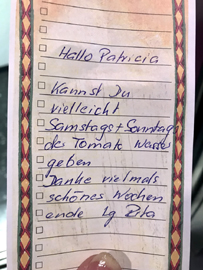 Hallo Patricia
Kannst Du
vielleicht
Samstags + Sonntag
des Tomate Wasser
geben
Danke vielmals
schönes Wochen
ende lg Rita